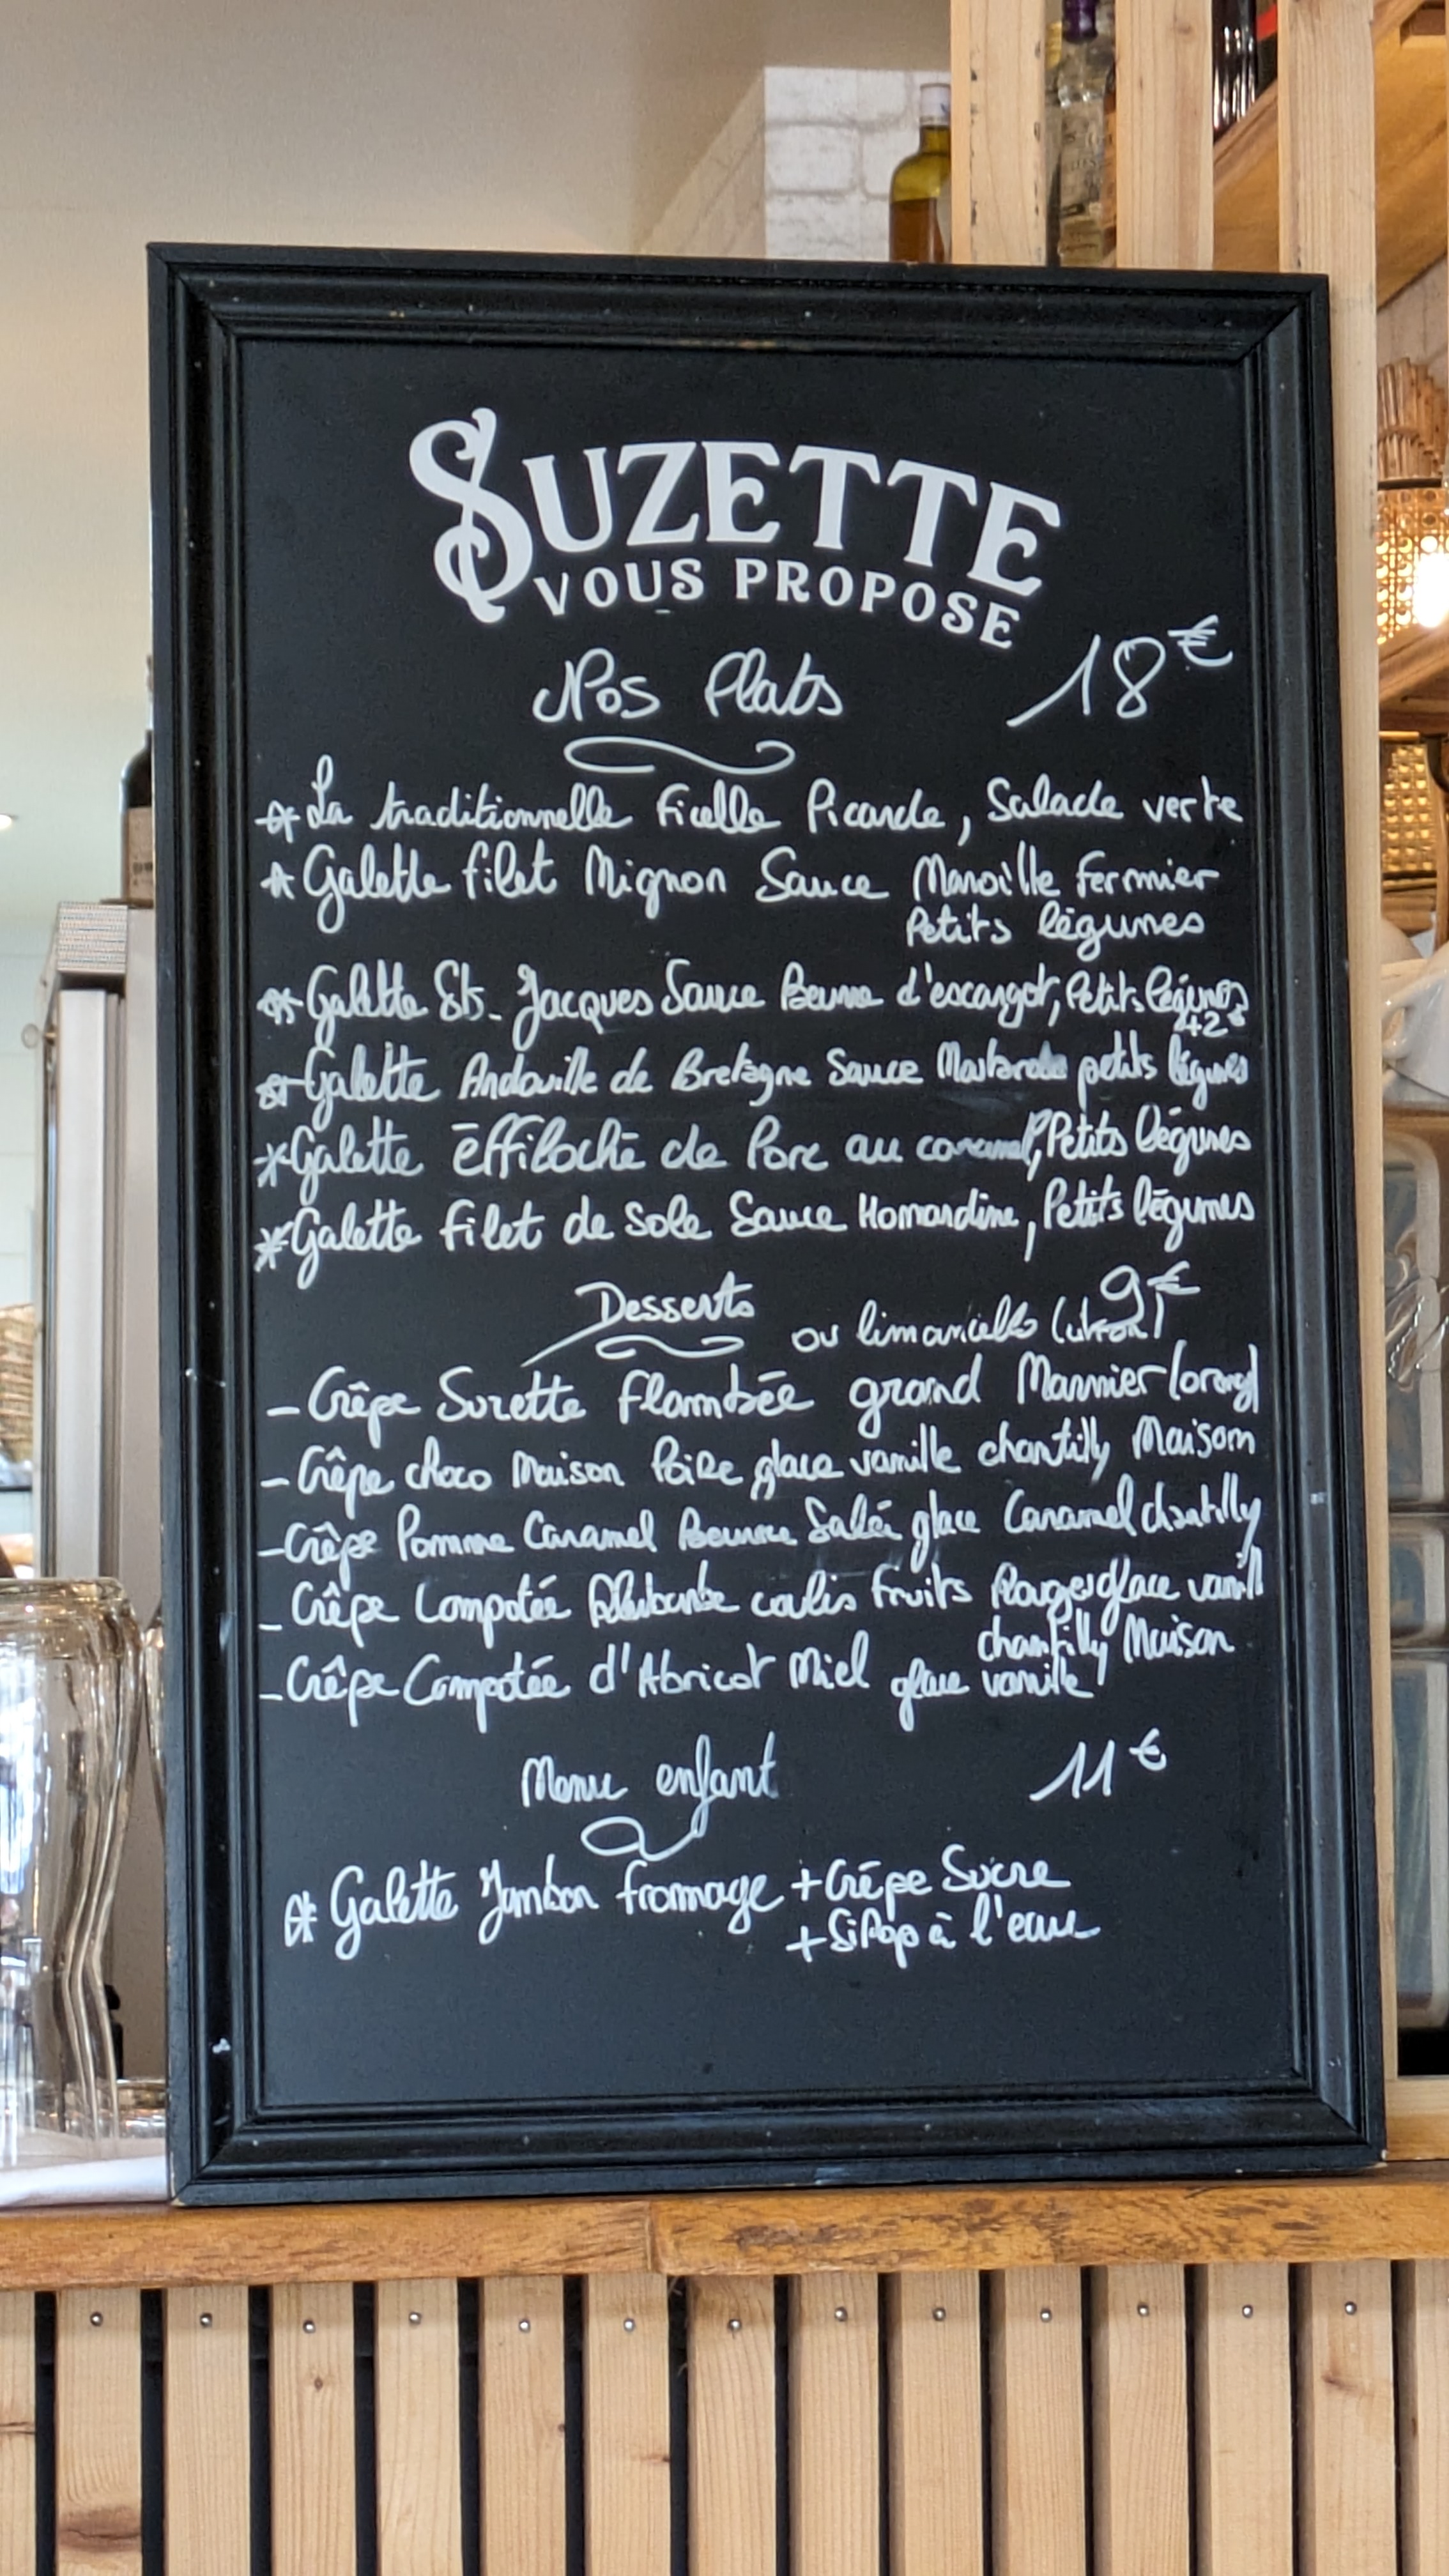 SUZETTE
VOUS PROPOSE
Nos Plats 18€
La traditionnelle Ficelle Picarde, Salade verte
Galette filet Mignon Sauce Maroille fermier
Petits légumes
Galette St-Jacques Sauce Beurre d'escargot, Petits légumes
+2€
Galette Andouille de Bretagne Sauce Moutarde petits légumes
Galette éffiloché de Porc au caramel, Petits légumes
Galette filet de Sole Sauce Homardine, Petits légumes
Desserts 9€
ou limoncello (citron)
- Crêpe Suzette flambée grand Marnier (orange)
- Crêpe choco Maison Poire glace vanille chantilly Maison
- Crêpe Pomme Caramel Beurre Salé glace Caramel chantilly
- Crêpe Compotée Rhubarbe coulis fruits Rouges glace vanill
chantilly Maison
- Crêpe Compotée d'Abricot Miel glace vanille
Menu enfant 11€
Galette Jambon fromage + Crêpe Sucre
+ Sirop à l'eau